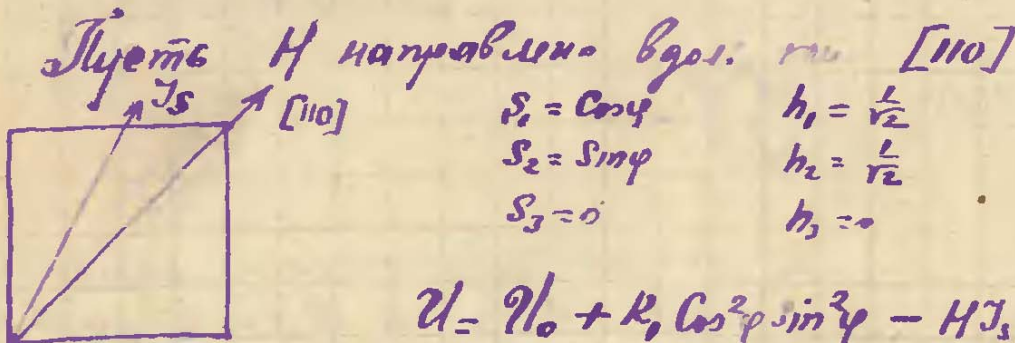 Пусть H направлено вдоль [110]
J_s [110]
S₁ = Cosφ h₁ = 1/√2
S₂ = Sinφ h₂ = 1/√2
S₃ = 0 h₃ = 0
U = U₀ + K₁ Cos²φ sin²φ − HJ_s